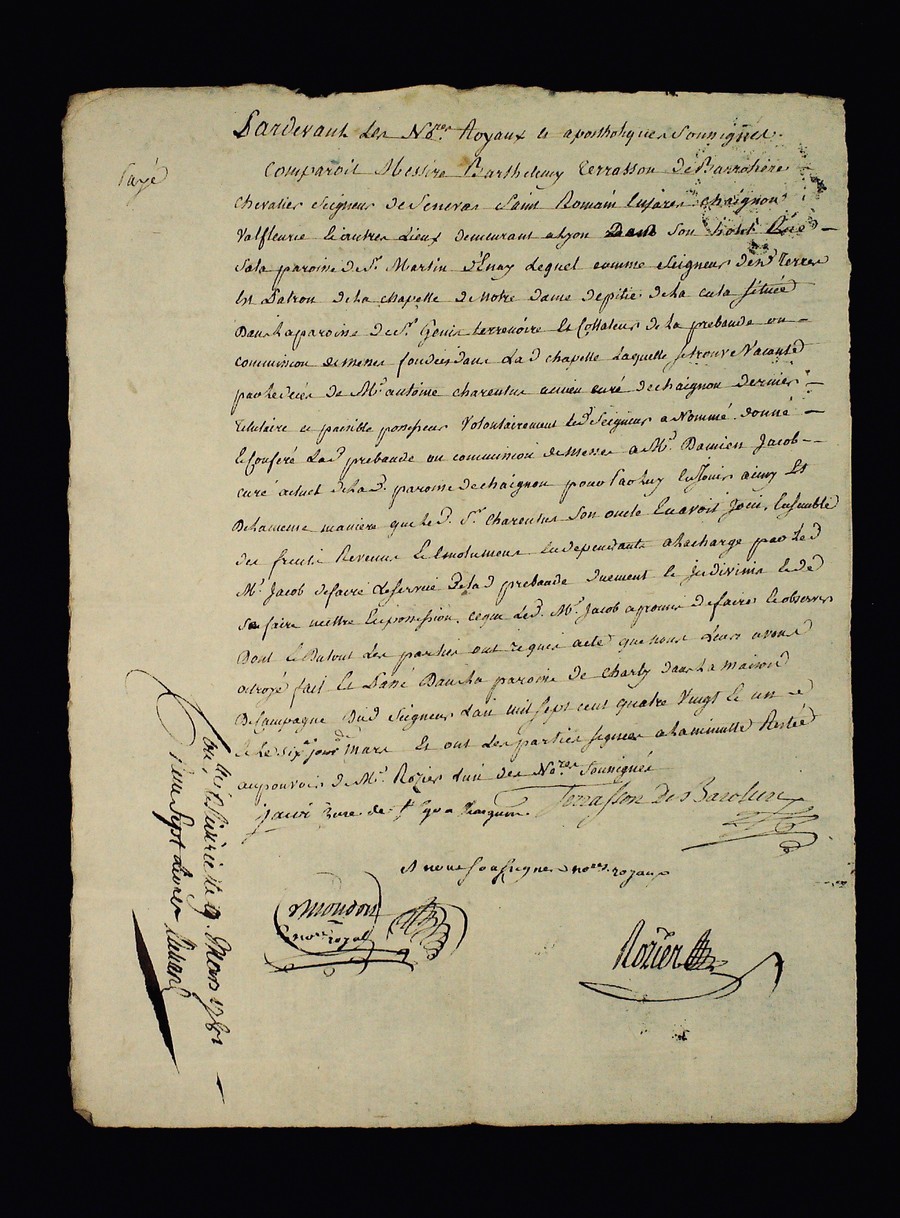 Pardevant Les No.res Royaux et apostholiques Soussignes.
payé
Comparoit Messire Barthelemy terrasson De Barrolière
Chevalier Seigneur de Senevas Saint Romain chaignon
Valfleurie Et autres Lieux demeurant a Lyon Dans Son hotel Rüe
Sala paroisse de St. Martin D'Enay Lequel comme Seigneur de terres
Est Patron de La chapelle de Notre dame de pitié de La cula Située
Dans La paroisse de St. Genis terrenoire Et Collateur de La prebande ou
commission de messes fondées dans La d chapelle Laquelle Se trouve Vacante
par Le décés de Mr. antoine charentus ancien curé de chaignon Dernier
titulaire et paisible possesseur Volontairement Led. Seigneur a Nommé donné
Et Conferé La d. prebande ou commission de messes a Mr. Damien Jacob
curé actuel de La d. paroisse de chaignon pour Par Luy En Jouir ainsy Et
De La meme manière que Le d. Sr. Charentus Son oncle En avoit Joüi, Ensemble
des fruits Revenus Et Emolumens En dependants a La charge par Le d
Mr. Jacob de faire Le Service De La d prebande duement Et in divinis Et de
Se faire mettre En possession, ce que Le d. Mr. Jacob a promis de faire Et observer
Dont Et Du tout Les parties ont requis acte que nous Leurs avons
octroyé fait Et Passé Dans La paroisse de Charly dans La maison
De Campagne Dud Seigneur L'an mil sept cent quatre Vingt Et un
Et Le six.e jour de Mars Et ont Les parties signées a La minutte Restée
au pouvoir de Mr. Rozier L'un des No.res Soussignés
Jacob Curé de Terrasson De Barolliere
Et nous Soussignes no.res royaux
Moudon
no.re royal
Rozier
Con.lé à St. le 9. Mars 1781
Reçu Sept Livres